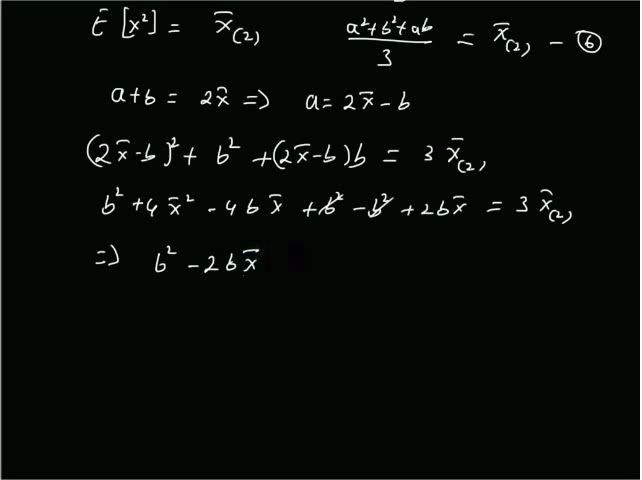 E [x²] = x̄₍₂₎    (a²+b²+ab)/3 = x̄₍₂₎ – ⑥
a+b = 2x̄ => a = 2x̄ – b
(2x̄–b)² + b² + (2x̄–b)b = 3 x̄₍₂₎
b² + 4x̄² – 4bx̄ + b² – b² + 2bx̄ = 3 x̄₍₂₎
=> b² – 2bx̄